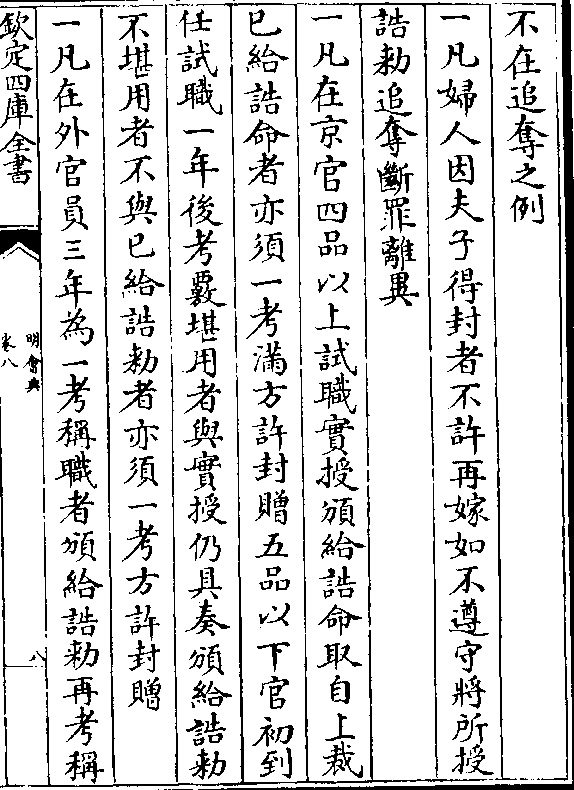 不在追奪之例
一凡婦人因夫子得封者不許再嫁如不遵守將所授
誥敕追奪斷罪離異
一凡在京官四品以上試職實授頒給誥命取自上裁
已給誥命者亦須一考滿方許封贈五品以下官初到
任試職一年後考覈堪用者與實授仍具奏頒給誥敕
不堪用者不與已給誥敕者亦須一考方許封贈
一凡在外官員三年為一考稱職者頒給誥敕再考稱
欽定四庫全書
明會典
卷八
八